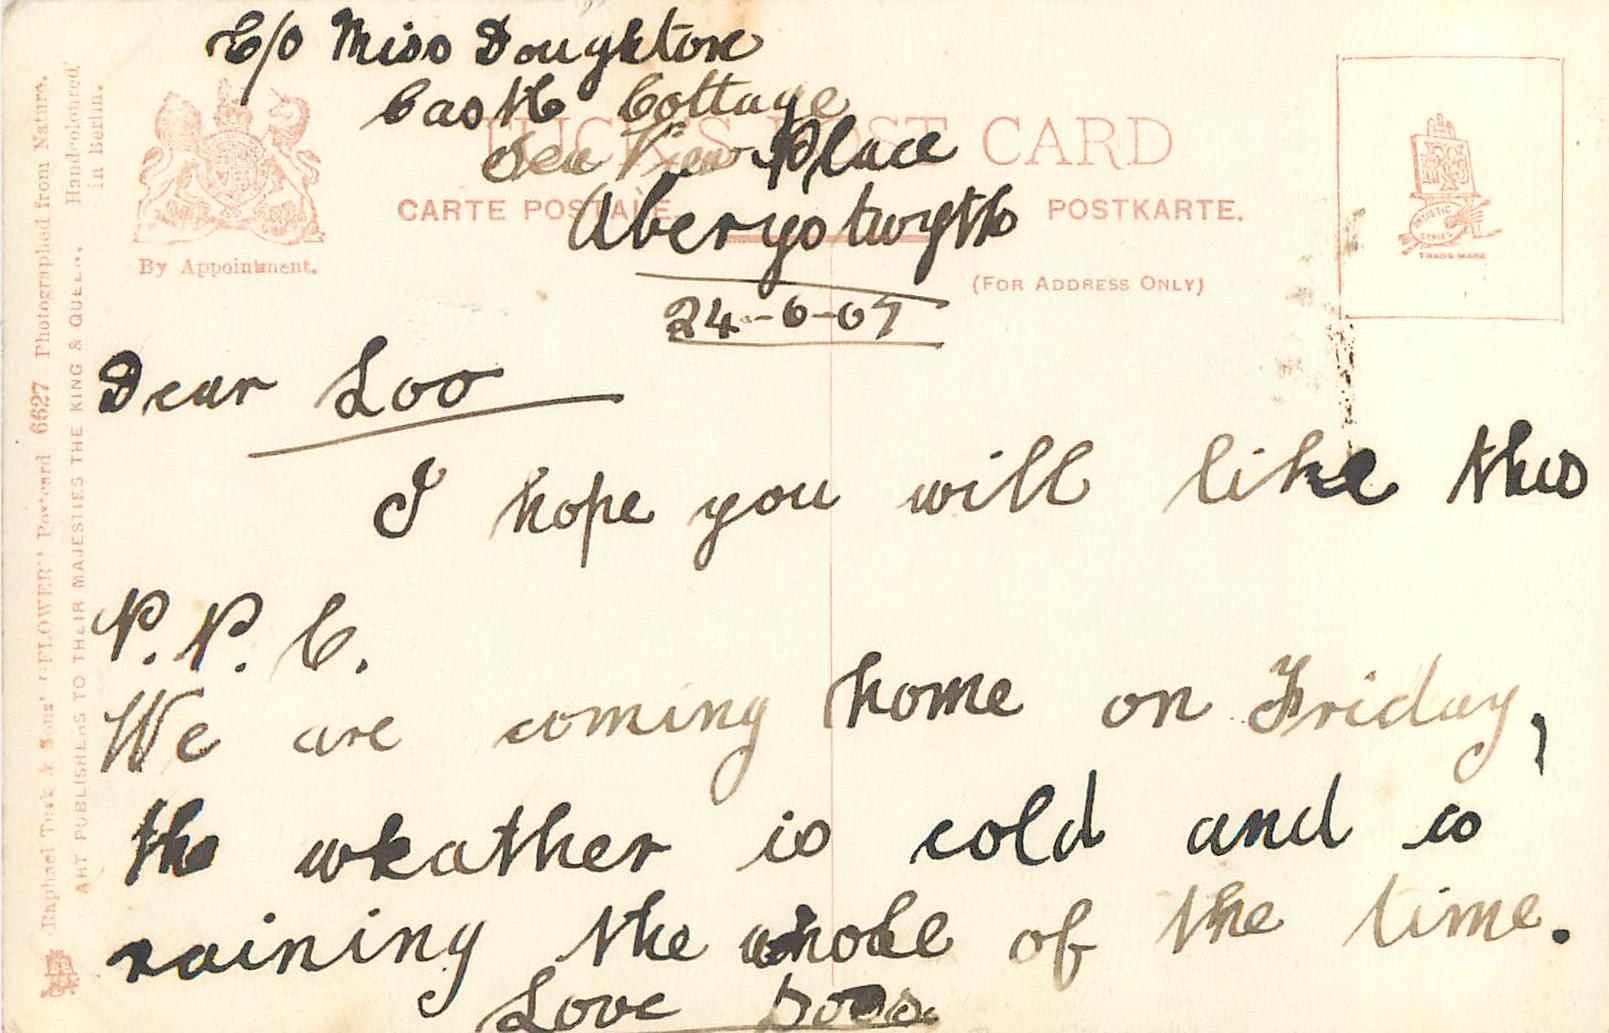 C/o Miss Doughton
Castle Cottage
Sea View Place
Aberystwyth
24-6-07
TUCK'S POST CARD
CARTE POSTALE. POSTKARTE.
(FOR ADDRESS ONLY)
By Appointment.
Dear Loo
I hope you will like this
P.P.C.
We are coming home on Friday,
the weather is cold and is
raining the whole of the time.
Love
Raphael Tuck & Sons' "FLOWER" Postcard 6627 Photographed from Nature. Handcoloured
in Berlin.
ART PUBLISHERS TO THEIR MAJESTIES THE KING & QUEEN.
ARTISTIC
SERIES
TRADE MARK